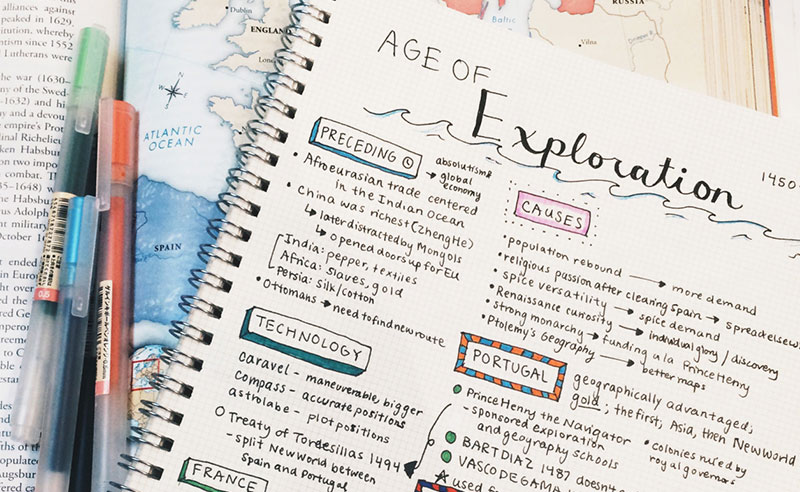 AGE OF
Exploration
1450
PRECEDING
absolutism &
→ global
economy
• Afroeurasian trade centered
in the Indian Ocean
• China was richest (Zheng He)
↳ later distracted by Mongols
↳ opened doors up for EU
India: pepper, textiles
Africa: slaves, gold
Persia: silk/cotton
• Ottomans → need to find new route
CAUSES
• population rebound → more demand
• religious passion after clearing Spain → spread elsew
• spice versatility → spice demand
• Renaissance curiosity → individual glory / discovery
• strong monarchy → funding a la Prince Henry
• Ptolemy's Geography → better maps
TECHNOLOGY
caravel - maneuverable, bigger
compass - accurate positions
astrolabe - plot positions
○ Treaty of Tordesillas 1494
- split New World between
Spain and Portugal
FRANCE
PORTUGAL
geographically advantaged;
gold; the first; Asia, then New World
Prince Henry the Navigator
- sponsored exploration
and geography schools
• colonies ruled by
royal governors
BART DIAZ 1487 doesn't
VASCO DE GAMA
used
Dublin
ENGLAND
London
ATLANTIC
OCEAN
SPAIN
Baltic
RUSSIA
Vilna
alliances against
peaked in 1629,
stitution, whereby
since 1552
Lutherans were
the war (1630–
of the Swed-
–1632) and hi
and a devou
empire's Prot
dinal Richelieu
ken Habsbur
on two impo
combat. The
35–1648) w
the Habsburg
us Adolph
military
October 1
ended
in Europe
0.5